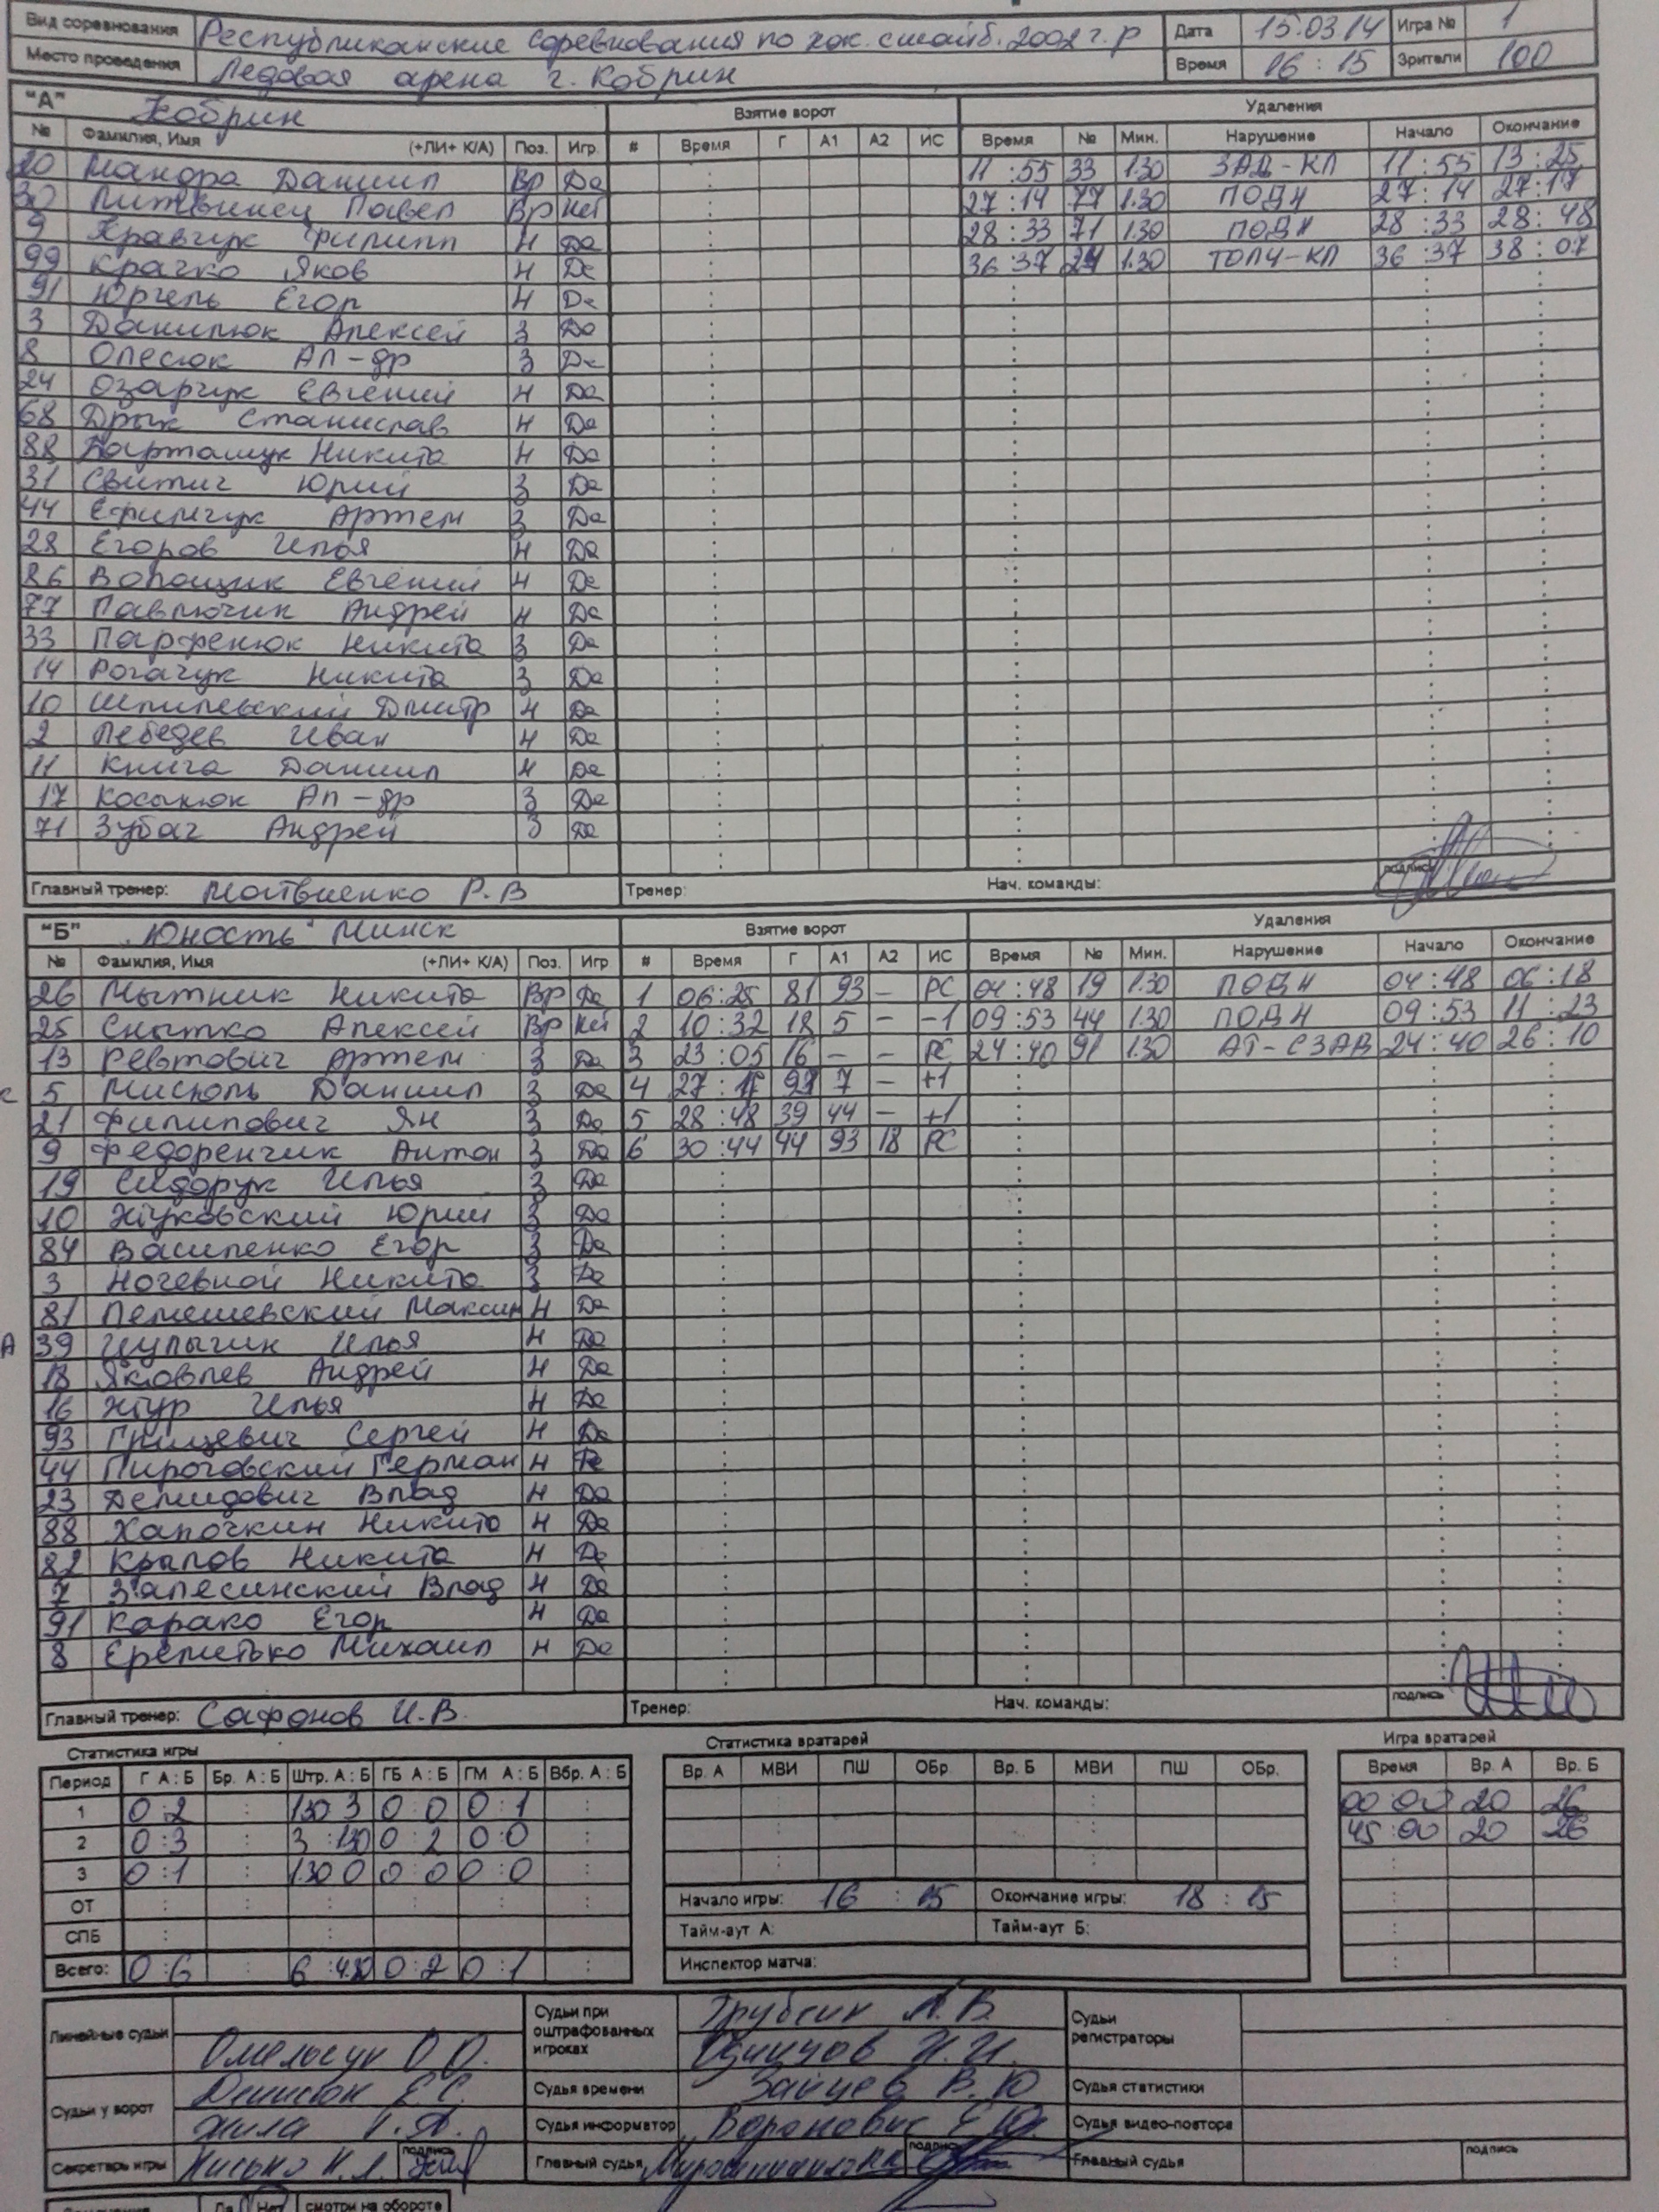 Вид соревнования Республиканские соревнования по хок. с шайб. 2002 г. р Дата 15.03.14 Игра № 1
Место проведения Ледовая арена г. Кобрин Время 16 : 15 Зрители 100
"А" Кобрин Взятие ворот Удаления
№ Фамилия, Имя (+ЛИ+ К/А) Поз. Игр. # Время Г А1 А2 ИС Время № Мин. Нарушение Начало Окончание
20 Мандра Даниил Вр Да 11 : 55 33 1.30 ЗАД-КЛ 11 : 55 13 : 25
30 Литвинец Павел Вр Нет 27 : 14 77 1.30 ПОДН 27 : 14 27 : 17
9 Кравчук Филипп Н Да 28 : 33 71 1.30 ПОДН 28 : 33 28 : 48
99 Крачко Яков Н Да 36 : 37 24 1.30 ТОЛЧ-КЛ 36 : 37 38 : 07
91 Юргель Егор Н Да
3 Данилюк Алексей З Да
8 Олесюк Ал-др З Да
24 Озарчук Евгений Н Да
68 Дрык Станислав Н Да
88 Карташук Никита Н Да
31 Свитич Юрий З Да
44 Ефимчук Артем З Да
28 Егоров Илья Н Да
86 Волощик Евгений Н Да
77 Павлючик Андрей Н Да
33 Парфенюк Никита З Да
14 Рогачук Никита З Да
10 Шпилевский Дмитр Н Да
2 Лебедев Иван Н Да
11 Книга Даниил Н Да
17 Косынюк Ал-др З Да
71 Зубач Андрей З Да
Главный тренер: Матвиенко Р. В Тренер: Нач. команды: подпись
"Б" "Юность" Минск Взятие ворот Удаления
№ Фамилия, Имя (+ЛИ+ К/А) Поз. Игр # Время Г А1 А2 ИС Время № Мин. Нарушение Начало Окончание
26 Мытник Никита Вр Да 1 06:25 81 93 – РС 04 : 48 19 1.30 ПОДН 04 : 48 06 : 18
25 Снытко Алексей Вр Нет 2 10 : 32 18 5 – -1 09 : 53 44 1.30 ПОДН 09 : 53 11 : 23
13 Ревтович Артем З Да 3 23 : 05 16 – – РС 24 : 40 91 1.30 АТ-СЗАВ 24 : 40 26 : 10
К 5 Мисюль Даниил З Да 4 27 : 17 93 7 – +1
21 Филипович Ян З Да 5 28 : 48 39 44 – +1
9 Федоренчик Антон З Да 6 30 : 44 44 93 18 РС
19 Сидорук Илья З Да
10 Жуковский Юрий З Да
84 Василенко Егор З Да
3 Ночевной Никита З Да
81 Лемешевский Максим Н Да
А 39 Цулыгик Илья Н Да
18 Яковлев Андрей Н Да
16 Жур Илья Н Да
93 Грицевич Сергей Н Да
44 Пироговский Герман Н Да
23 Демидович Влад Н Да
88 Халочкин Никита Н Да
82 Крылов Никита Н Да
7 Залесинский Влад Н Да
91 Карако Егор Н Да
8 Еремитько Михаил Н Да
Главный тренер: Сафонов И. В. Тренер: Нач. команды: подпись
Статистика игры Статистика вратарей Игра вратарей
Период Г А : Б Бр. А : Б Штр. А : Б ГБ А : Б ГМ А : Б Вбр. А : Б Вр. А МВИ ПШ ОБр Вр. Б МВИ ПШ ОБр. Время Вр. А Вр. Б
1 0 : 2 1.30 3 0 0 0 : 1 00 : 00 20 26
2 0 : 3 3 : 1.30 0 : 2 0 : 0 45 : 00 20 26
3 0 : 1 1.30 0 0 0 0 : 0
ОТ Начало игры: 16 : 15 Окончание игры: 18 : 15
СПБ Тайм-аут А: Тайм-аут Б:
Всего: 0 : 6 6 : 4.30 0 : 2 0 : 1 Инспектор матча:
Линейные судьи Омельчук О. О. Судьи при оштрафованных игроках Трубчик А. В. Судьи регистраторы
Судьи у ворот Денисюк Е. С. Судья времени Зайцев В. Ю Судья статистики
Судья информатор Воронович Е. Ю. Судья видео-повтора
Секретарь игры подпись Главный судья подпись Главный судья подпись
Да Нет смотри на обороте